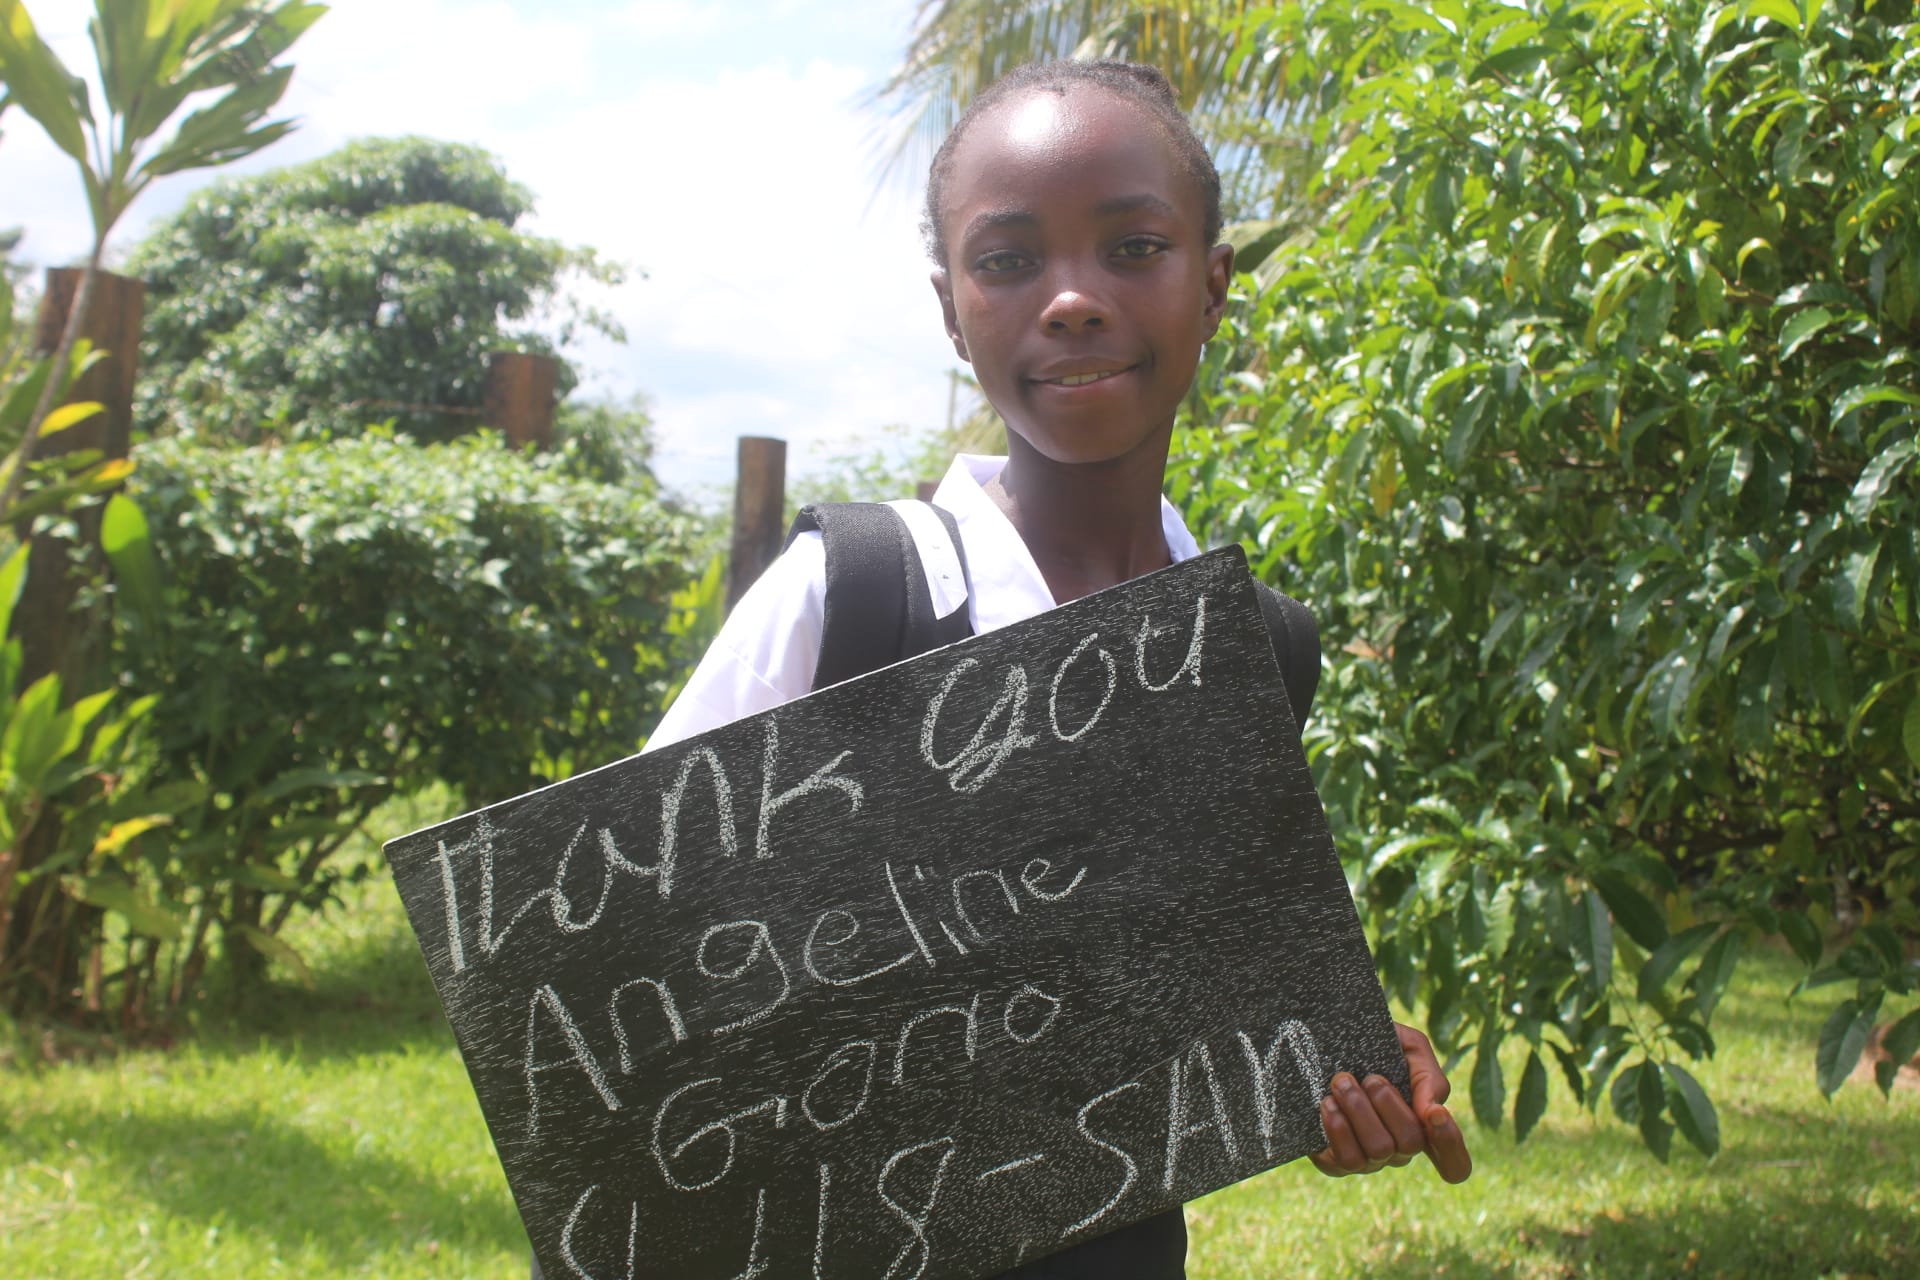 Thank you
Angeline
Gono
4118-SAN